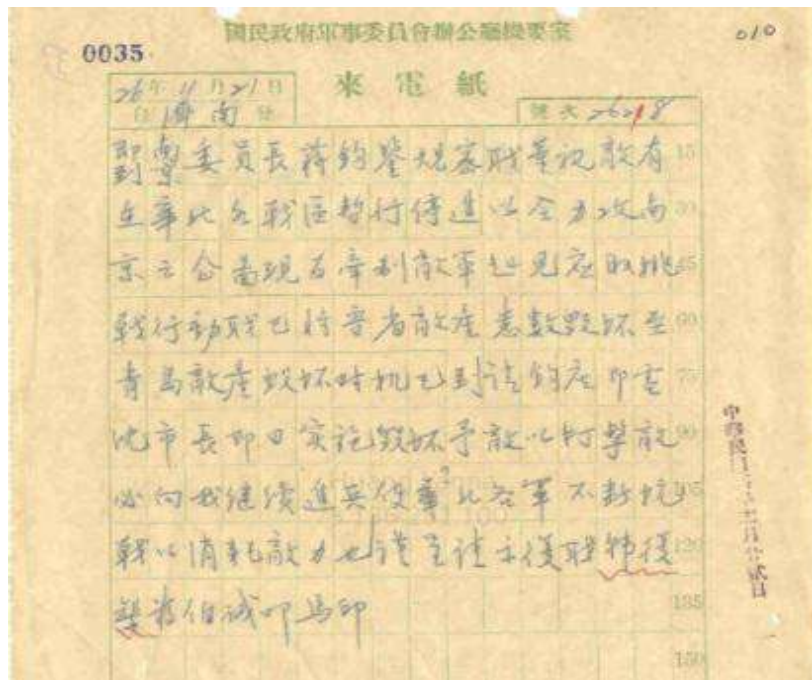 国民政府軍事委員會辦公廳機要室
010
0035
來電紙
26年11月21日
自濟南發
號次 26218
即到南京委員長蔣鈞鑒規密職等訊敵有
在華北各戰區暫行停進以全力攻南
京之企畫現為牽制敵軍起見應取挑
戰行動職已將晉省敵產悉數毀坏至
青島敵產毀坏時机已到請鈞座即電
沈市長即日實施毀坏予敵以打擊敵
必向我继续進兵使華北各軍不斷抗
戰以消耗敵力也謹呈請示復職韓復
榘蔣伯誠叩馬印
15
30
45
60
75
90
105
120
135
150